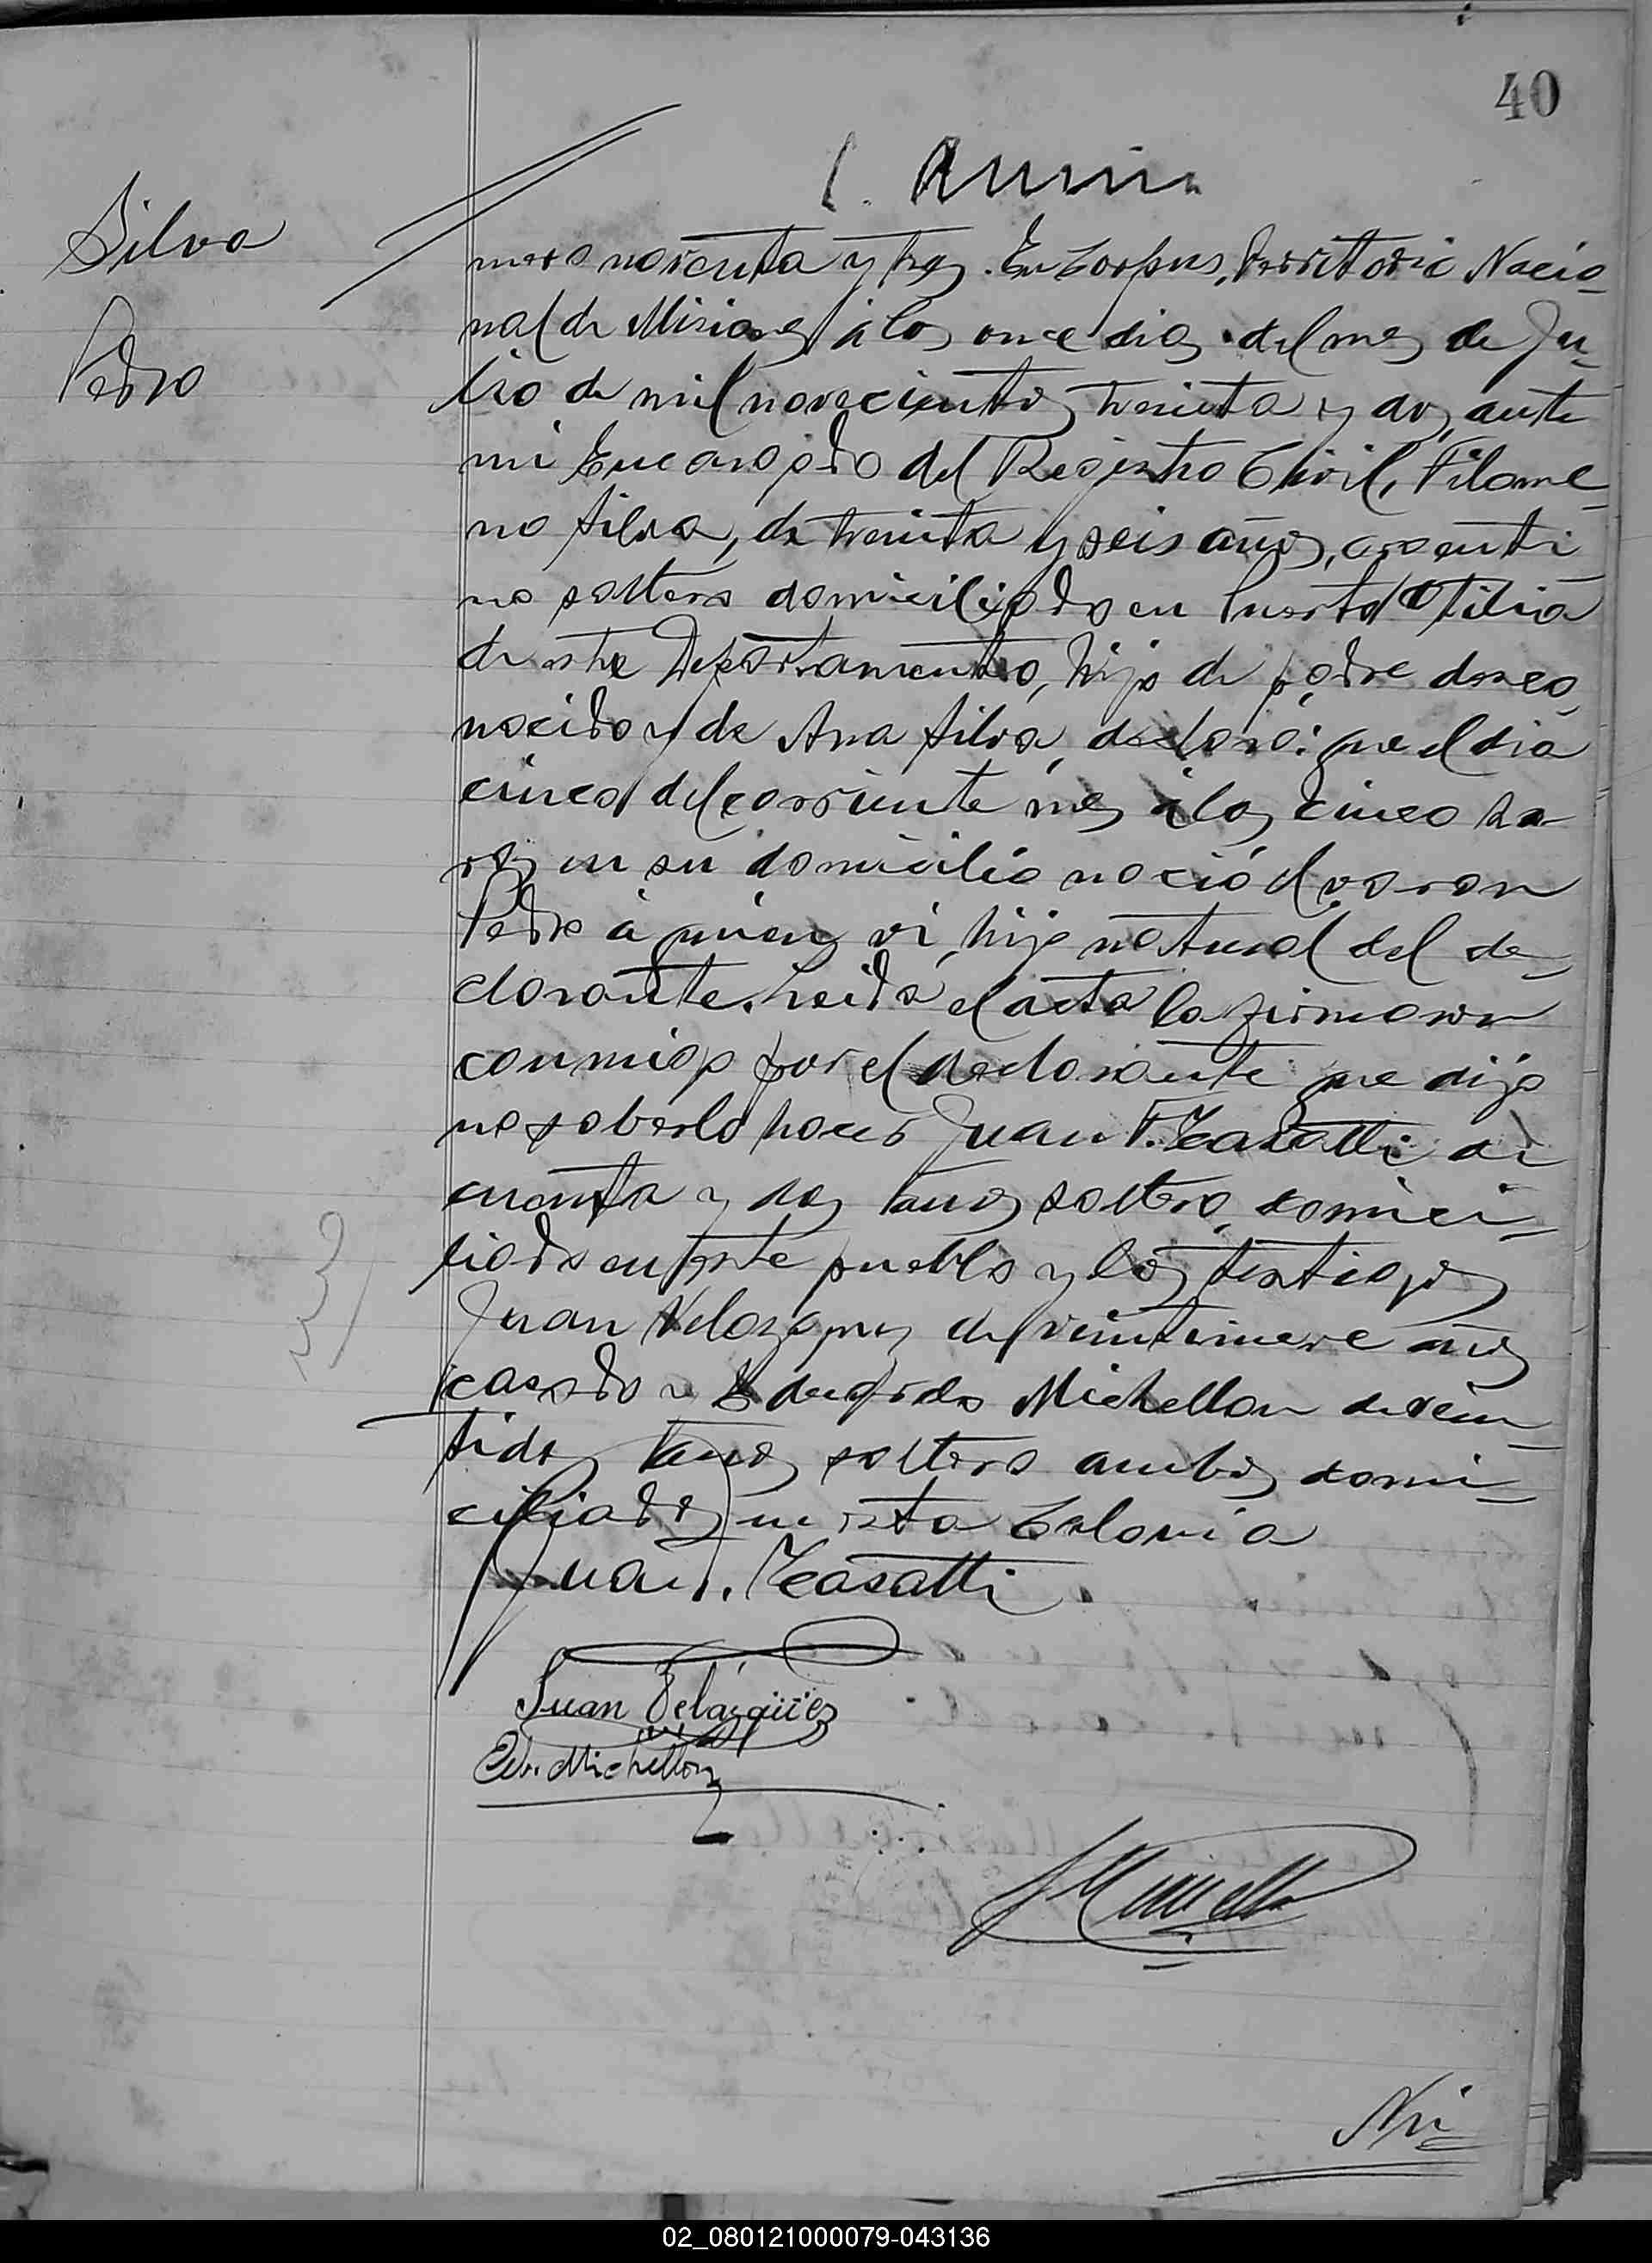 40
Silva
Pedro
mero noventa y tres. En Corpus, Territorio Nacio_
nal de Misiones á los once dias del mes de Ju_
lio de mil novecientos treinta y dos, ante
mi Encargado del Registro Civil, Filome_
no Silva, de treinta y seis años, argenti_
no soltero domiciliado en Puerto Otilia
de este Departamento, hijo de padre desco_
nocido y de Ana Silva, declaró: que el dia
cinco del corriente mes á las cinco ho_
ras en su domicilio nació el varon
Pedro á quien vi, hijo natural del de_
clarante. Leida el acta la firmaron
conmigo por el declarante que dijo
no saberlo hacer Juan F. Casatti de
cuenta y dos años soltero, domici_
liado en este pueblo y los testigos
Juan Velazquez de veintinueve años
casado y Michellon de vein_
tidos años soltero ambos domi_
ciliados en esta Colonia
Juan F. Casatti
Juan Velázqüez
Edu. Michellon
Nú_
02_080121000079-043136